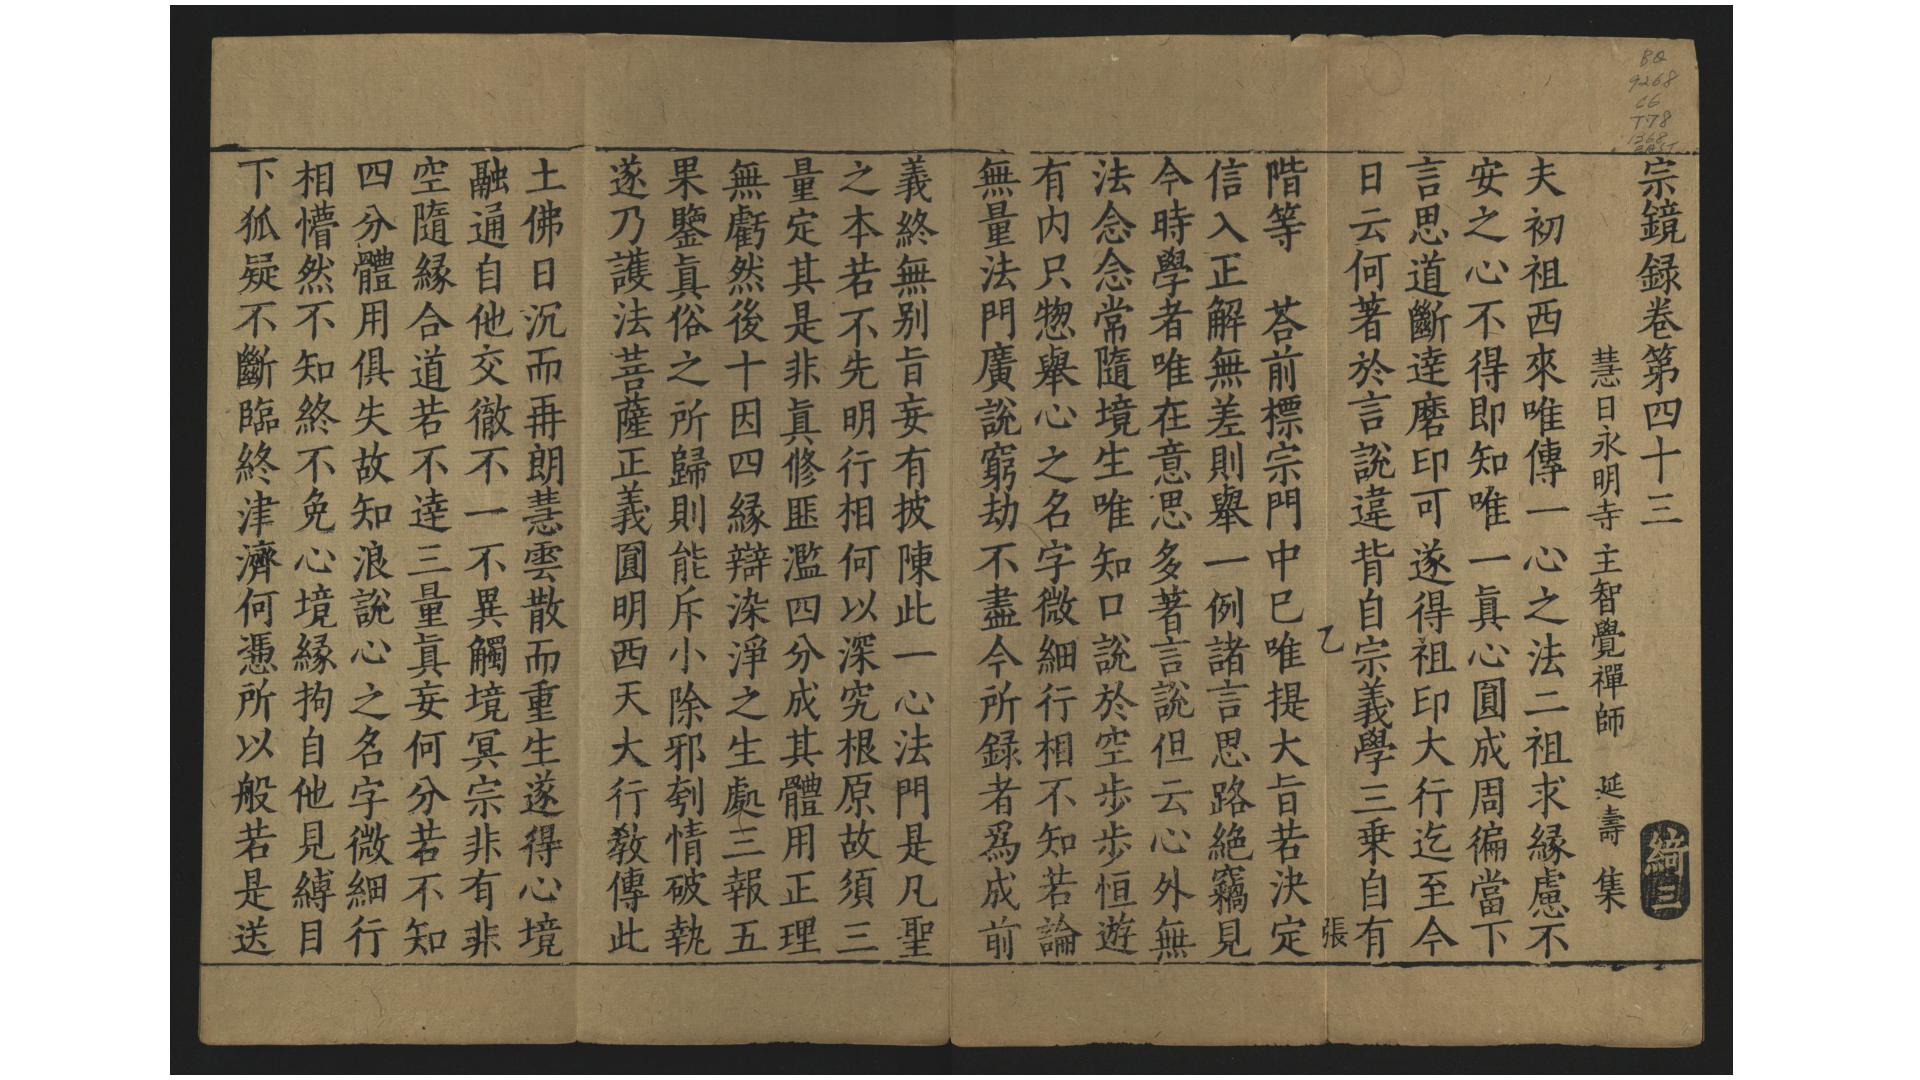 BQ
9268
C6
T78
1368
EAST
宗鏡録卷第四十三
綺三
慧日永明寺主智覺禪師 延壽 集
夫初祖西來唯傳一心之法二祖求縁慮不
安之心不得即知唯一眞心圓成周徧當下
言思道斷達磨印可遂得祖印大行迄至今
日云何著於言說違背自宗義學三乗自有
乙
張
階等 荅前標宗門中已唯提大旨若決定
信入正解無差則舉一例諸言思路絶竊見
今時學者唯在意思多著言說但云心外無
法念念常隨境生唯知口說於空步步恒遊
有内只惣舉心之名字微細行相不知若論
無量法門廣說窮劫不盡今所録者爲成前
義終無别旨妄有披陳此一心法門是凡聖
之本若不先明行相何以深究根原故須三
量定其是非眞修匪濫四分成其體用正理
無虧然後十因四縁辯染淨之生處三報五
果鑒眞俗之所歸則能斥小除邪刳情破執
遂乃護法菩薩正義圓明西天大行教傳此
土佛日沉而再朗慧雲散而重生遂得心境
融通自他交徹不一不異觸境冥宗非有非
空隨緣合道若不達三量眞妄何分若不知
四分體用俱失故知浪說心之名字微細行
相懵然不知終不免心境縁拘自他見縛目
下狐疑不斷臨終津濟何憑所以般若是送